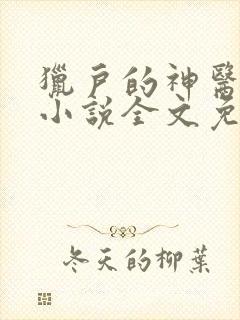 獵戶的神醫
小說全文免
冬天的柳葉